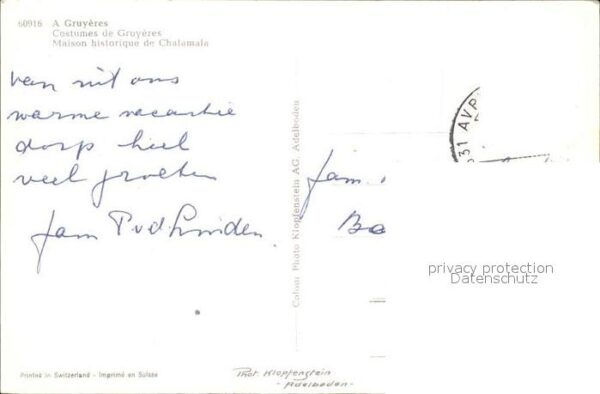 60916 A Gruyères
Costumes de Gruyères
Maison historique de Chalamala
van uit ons
warme vacantie
dorp heel
veel groeten
fam P.v.d. Linden.
Colour Photo Klopfenstein AG. Adelboden
fam.
Ba
privacy protection
Datenschutz
Printed in Switzerland - Imprimé en Suisse
Phot. Klopfenstein
- Adelboden -